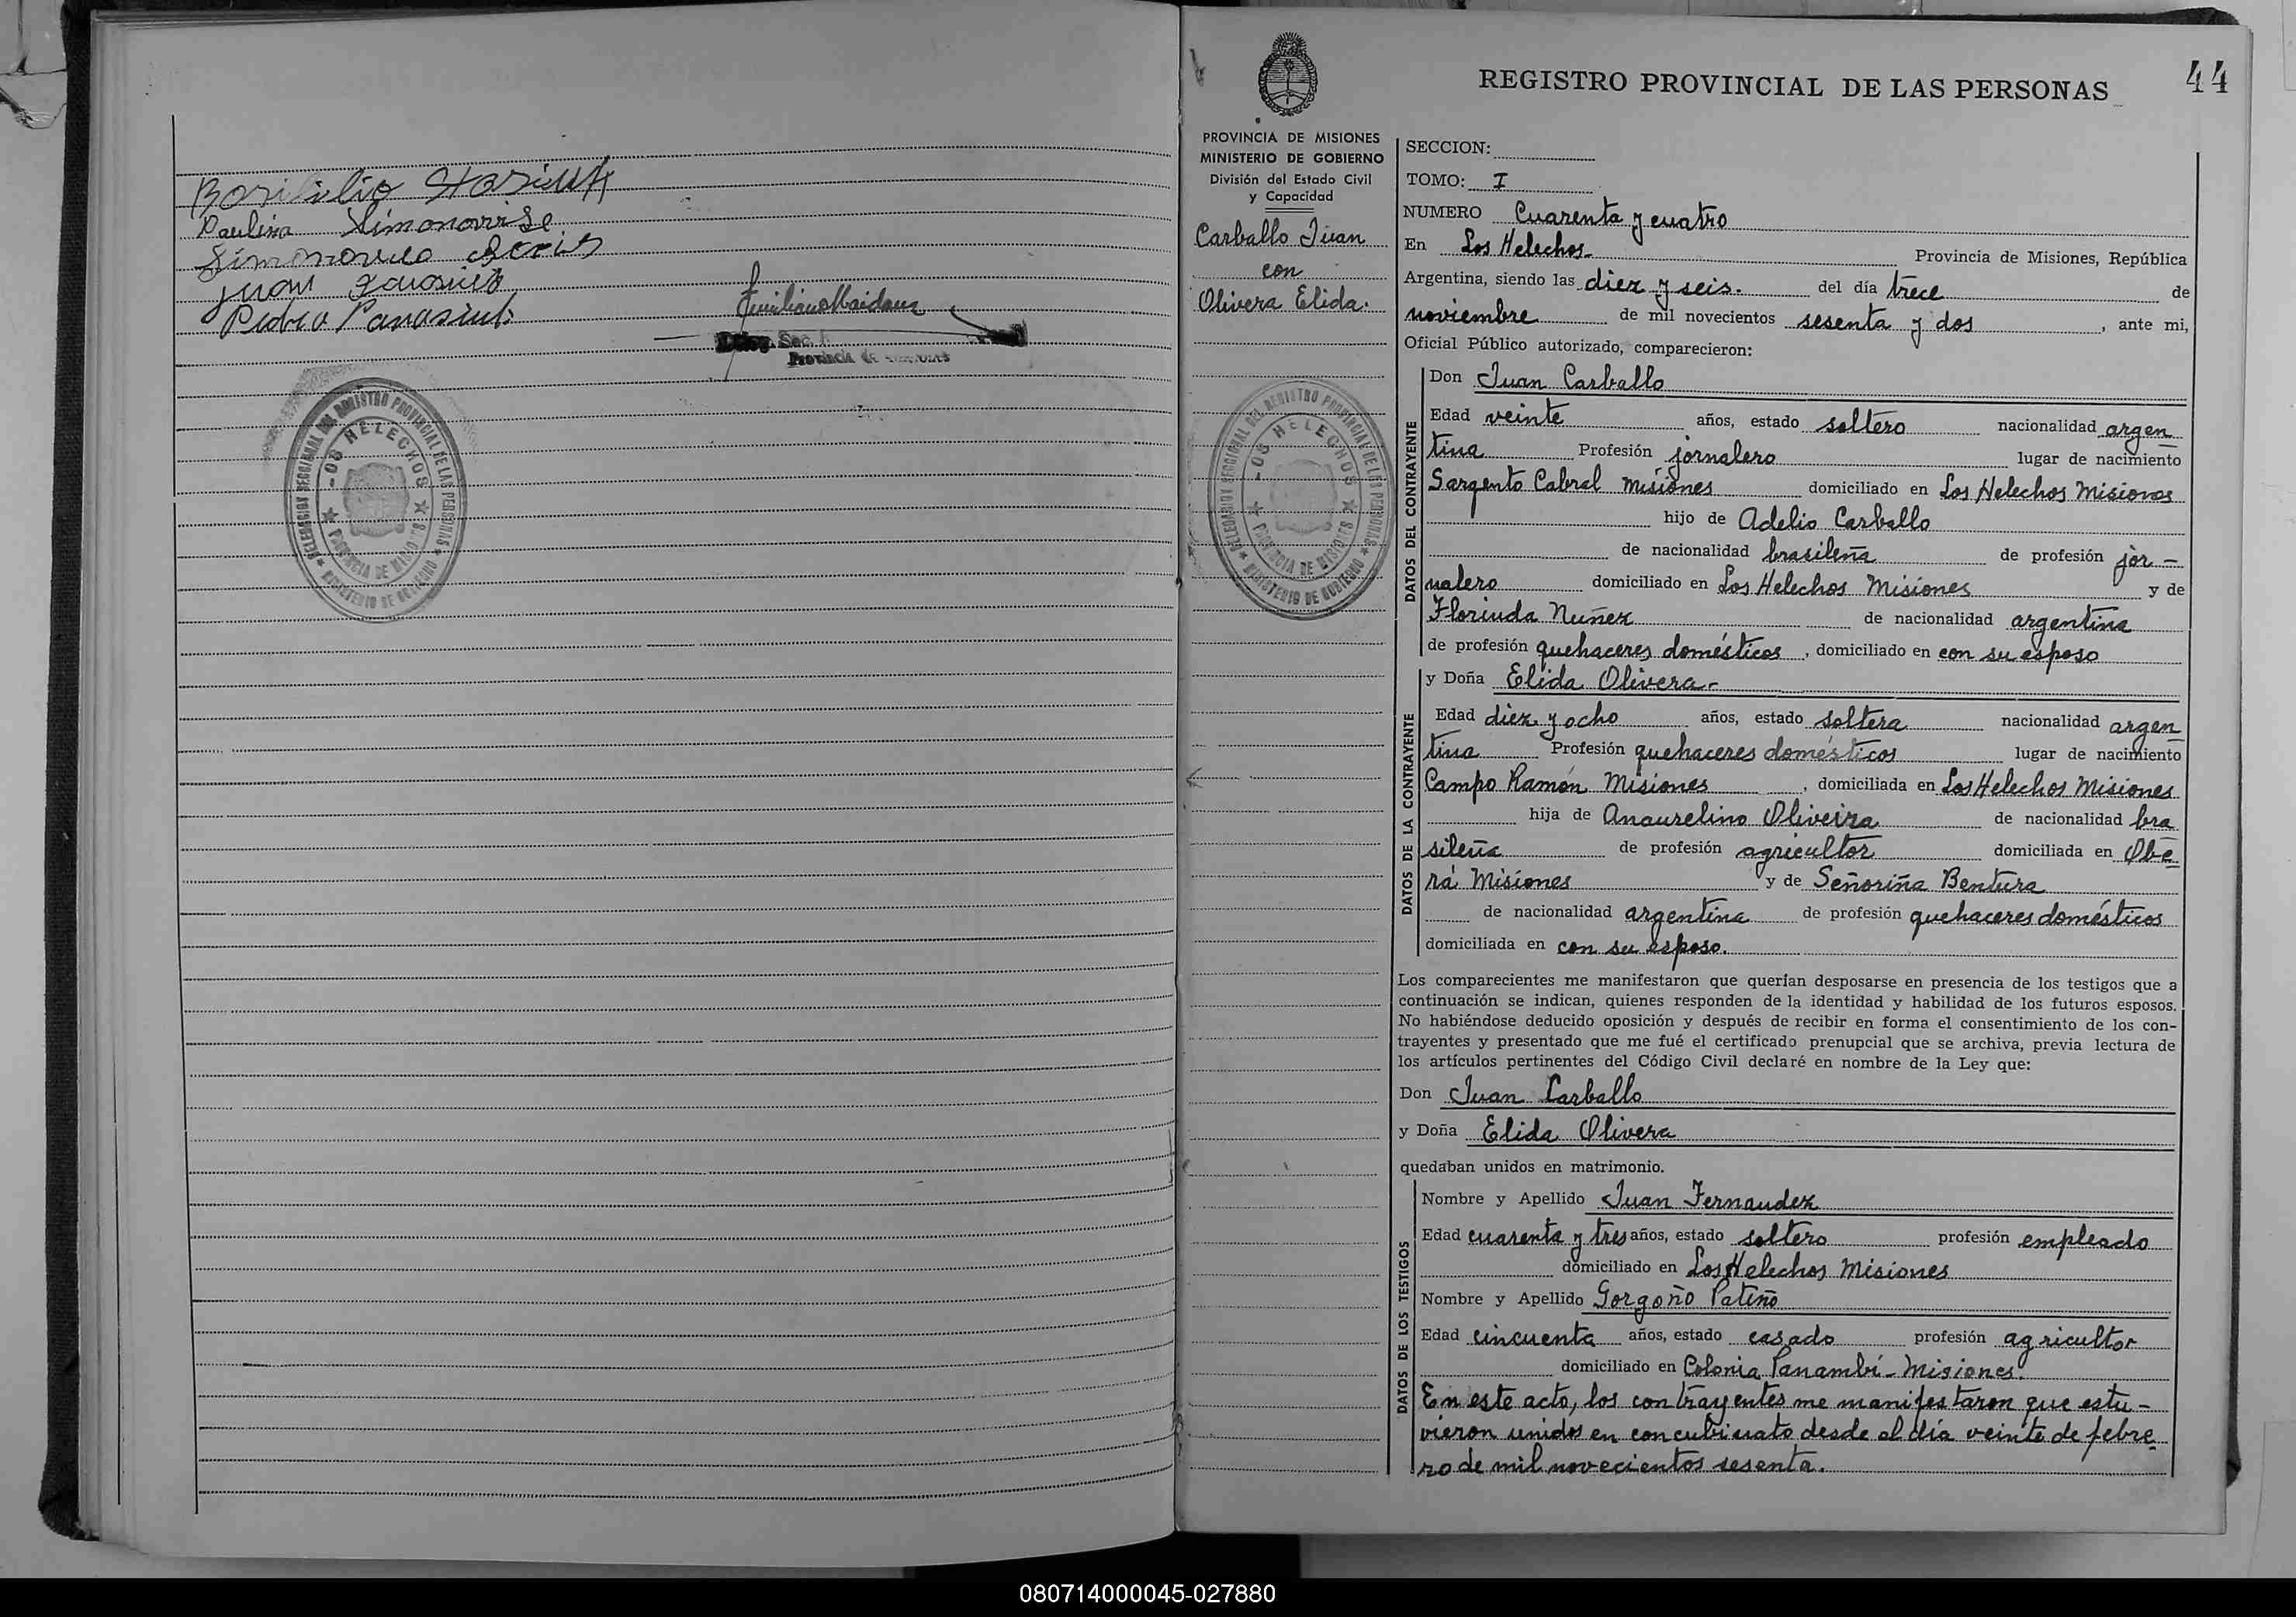 Paulina Simonovise
Pedro Panasiuk
Emiliano Maidana
Deleg. Sec.
Provincia de Misiones
DELEGACION SECCIONAL DEL REGISTRO PROVINCIAL DE LAS PERSONAS
LOS HELECHOS
PROVINCIA DE MISIONES
MINISTERIO DE GOBIERNO
REGISTRO PROVINCIAL DE LAS PERSONAS
44
PROVINCIA DE MISIONES
MINISTERIO DE GOBIERNO
División del Estado Civil
y Capacidad
Carballo Juan
con
Olivera Elida.
DELEGACION SECCIONAL DEL REGISTRO PROVINCIAL DE LAS PERSONAS
LOS HELECHOS
PROVINCIA DE MISIONES
MINISTERIO DE GOBIERNO
SECCION:
TOMO: I
NUMERO Cuarenta y cuatro
En Los Helechos Provincia de Misiones, República
Argentina, siendo las diez y seis. del día trece de
noviembre de mil novecientos sesenta y dos, ante mi,
Oficial Público autorizado, comparecieron:
DATOS DEL CONTRAYENTE
Don Juan Carballo
Edad veinte años, estado soltero nacionalidad argen
tina Profesión jornalero lugar de nacimiento
Sargento Cabral Misiones domiciliado en Los Helechos Misiones
hijo de Adelio Carballo
de nacionalidad brasileña de profesión jor-
nalero domiciliado en Los Helechos Misiones y de
Florinda Nuñez de nacionalidad argentina
de profesión quehaceres domésticos, domiciliado en con su esposo
DATOS DE LA CONTRAYENTE
y Doña Elida Olivera.-
Edad diez y ocho años, estado soltera nacionalidad argen
tina Profesión quehaceres domésticos lugar de nacimiento
Campo Ramón Misiones, domiciliada en Los Helechos Misiones
hija de Anaurelino Oliveira de nacionalidad bra
sileña de profesión agricultor domiciliada en Obe
rá Misiones y de Señoriña Bentura
de nacionalidad argentina de profesión quehaceres domésticos
domiciliada en con su esposo.
Los comparecientes me manifestaron que querían desposarse en presencia de los testigos que a
continuación se indican, quienes responden de la identidad y habilidad de los futuros esposos.
No habiéndose deducido oposición y después de recibir en forma el consentimiento de los con-
trayentes y presentado que me fué el certificado prenupcial que se archiva, previa lectura de
los artículos pertinentes del Código Civil declaré en nombre de la Ley que:
Don Juan Carballo
y Doña Elida Olivera
quedaban unidos en matrimonio.
DATOS DE LOS TESTIGOS
Nombre y Apellido Juan Fernandez
Edad cuarenta y tres años, estado soltero profesión empleado
domiciliado en Los Helechos Misiones
Nombre y Apellido Gorgoño Patiño
Edad cincuenta años, estado casado profesión agricultor
domiciliado en Colonia Panambí - Misiones.
En este acto, los contrayentes me manifestaron que estu-
vieron unidos en concubinato desde el día veinte de febre
ro de mil novecientos sesenta.
080714000045-027880